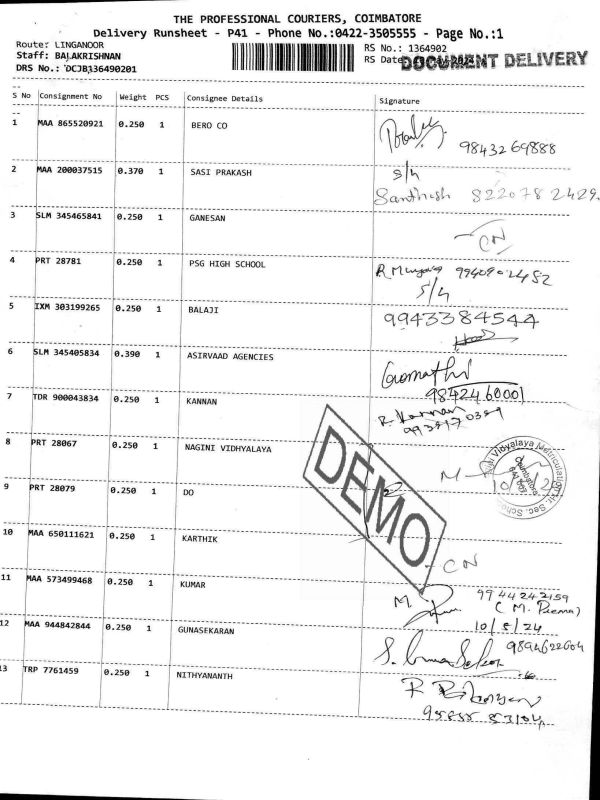 THE PROFESSIONAL COURIERS, COIMBATORE
Delivery Runsheet - P41 - Phone No.:0422-3505555 - Page No.:1
Route: LINGANOOR
Staff: BALAKRISHNAN
DRS No.: DCJB136490201
RS No.: 1364902
RS Date:
DOCUMENT DELIVERY
S No Consignment No Weight PCS Consignee Details Signature
1 MAA 865520921 0.250 1 BERO CO
98432 69888
2 MAA 200037515 0.370 1 SASI PRAKASH
S/h
Santhish 822078 2429.
3 SLM 345465841 0.250 1 GANESAN
CN
4 PRT 28781 0.250 1 PSG HIGH SCHOOL
S/h
5 IXM 303199265 0.250 1 BALAJI
9943384544
6 SLM 345405834 0.390 1 ASIRVAAD AGENCIES
Gomathi
9842460001
7 TDR 900043834 0.250 1 KANNAN
R. Kannan
8 PRT 28067 0.250 1 NAGINI VIDHYALAYA
9 PRT 28079 0.250 1 DO
DEMO
10 MAA 650111621 0.250 1 KARTHIK
CN
11 MAA 573499468 0.250 1 KUMAR
M.
9944242159
(M. Prema)
10/5/24
12 MAA 944842844 0.250 1 GUNASEKARAN
9894622604
13 TRP 7761459 0.250 1 NITHYANANTH